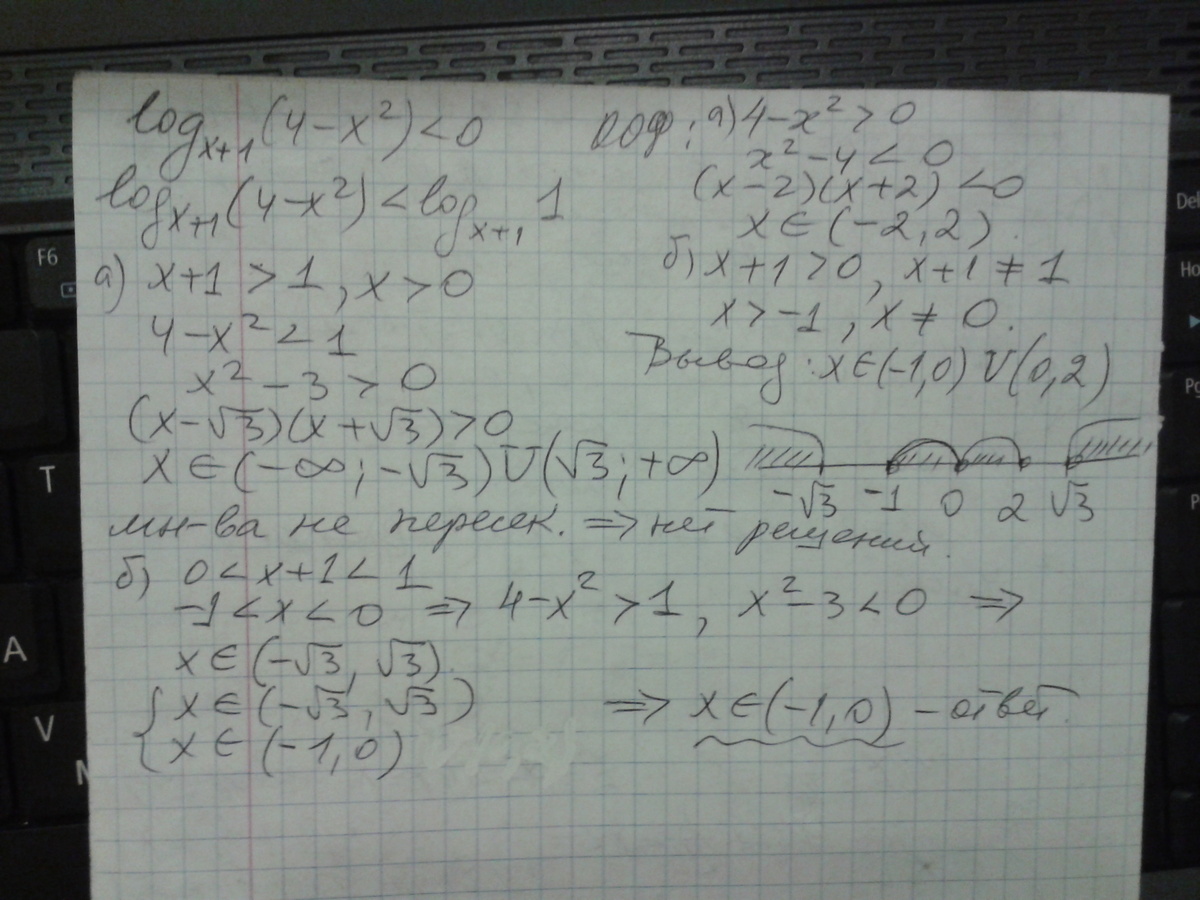 log_{x+1}(4-x²)<0
log_{x+1}(4-x²)<log_{x+1} 1
а) x+1>1, x>0
4-x²<1
x²-3>0
(x-√3)(x+√3)>0
x∈(-∞;-√3)U(√3;+∞)
ООФ: а) 4-x²>0
x²-4<0
(x-2)(x+2)<0
x∈(-2,2).
б) x+1>0, x+1≠1
x>-1, x≠0.
Вывод: x∈(-1,0)U(0,2)
-√3 -1 0 2 √3
мн-ва не пересек. => нет решений.
б) 0<x+1<1
-1<x<0 => 4-x²>1, x²-3<0 =>
x∈(-√3,√3).
{ x∈(-√3,√3) => x∈(-1,0) - ответ.
x∈(-1,0)
F6
Del
Ho
Pg
P
T
A
V